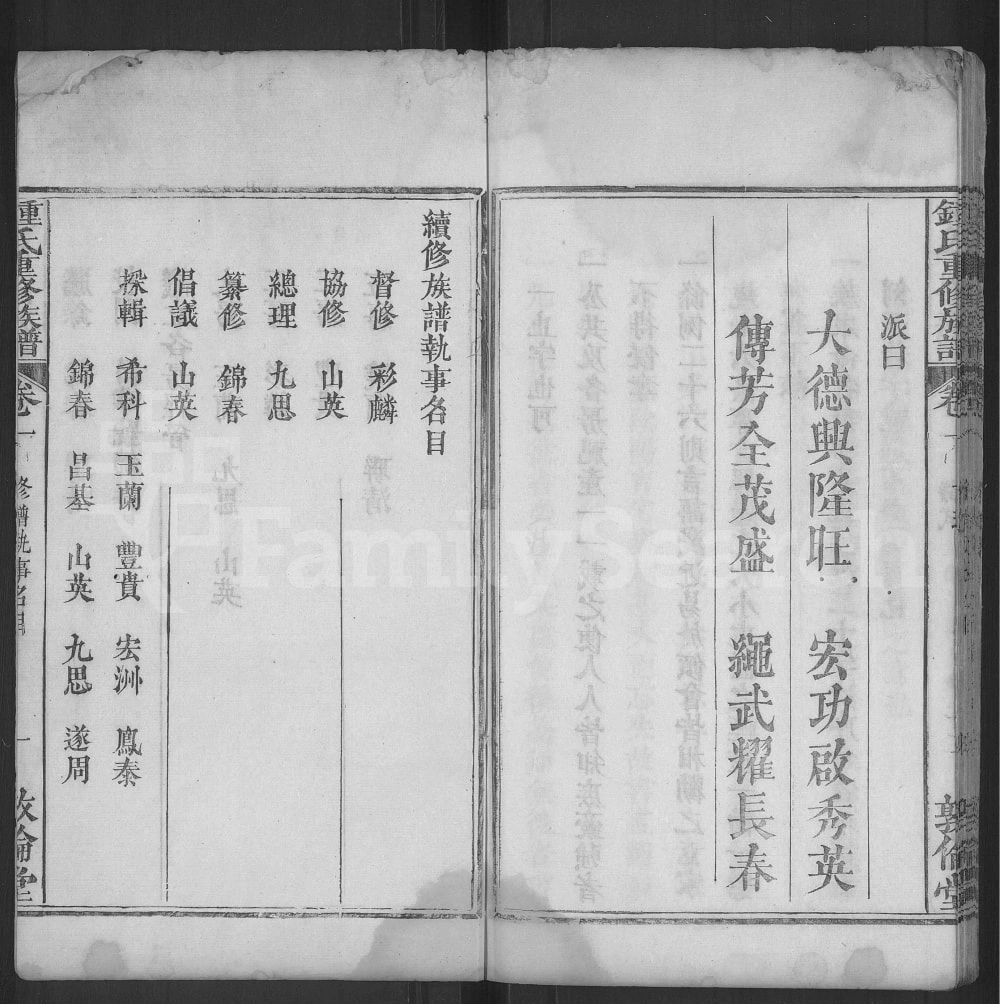 鍾氏重修族譜
卷一
敦倫堂
派曰
大德興隆旺 宏功啟秀英
傳芳全茂盛 繩武耀長春
續修族譜執事名目
督修 彩麟
協修 山英
總理 九思
纂修 錦春
倡議 山英
採輯 希科 玉蘭 豐貴 宏洲 鳳泰
錦春 昌基 山英 九思 遂周
鍾氏重修族譜
卷一
修譜執事名目
一
敦倫堂
FamilySearch